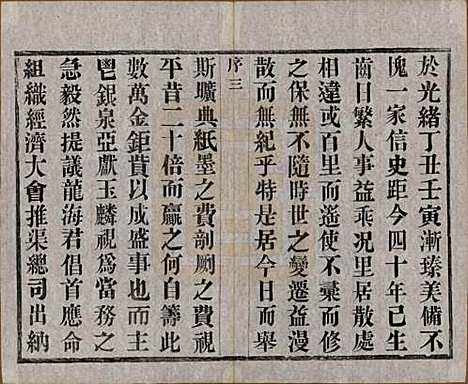 於光緒丁丑壬寅漸臻美備不
愧一家信史距今四十年已生
齒日繁人事益乖況里居散處
相違或百里而遙使不彚而修
之保無不隨時世之變遷益漫
散而無紀乎特是居今日而舉
序三
斯曠典紙墨之費剞劂之費視
平昔二十倍而贏之何自籌此
數萬金鉅貲以成盛事也而主
鬯銀泉亞獻玉麟視爲當務之
急毅然提議龍海君倡首應命
組織經濟大會推渠總司出納